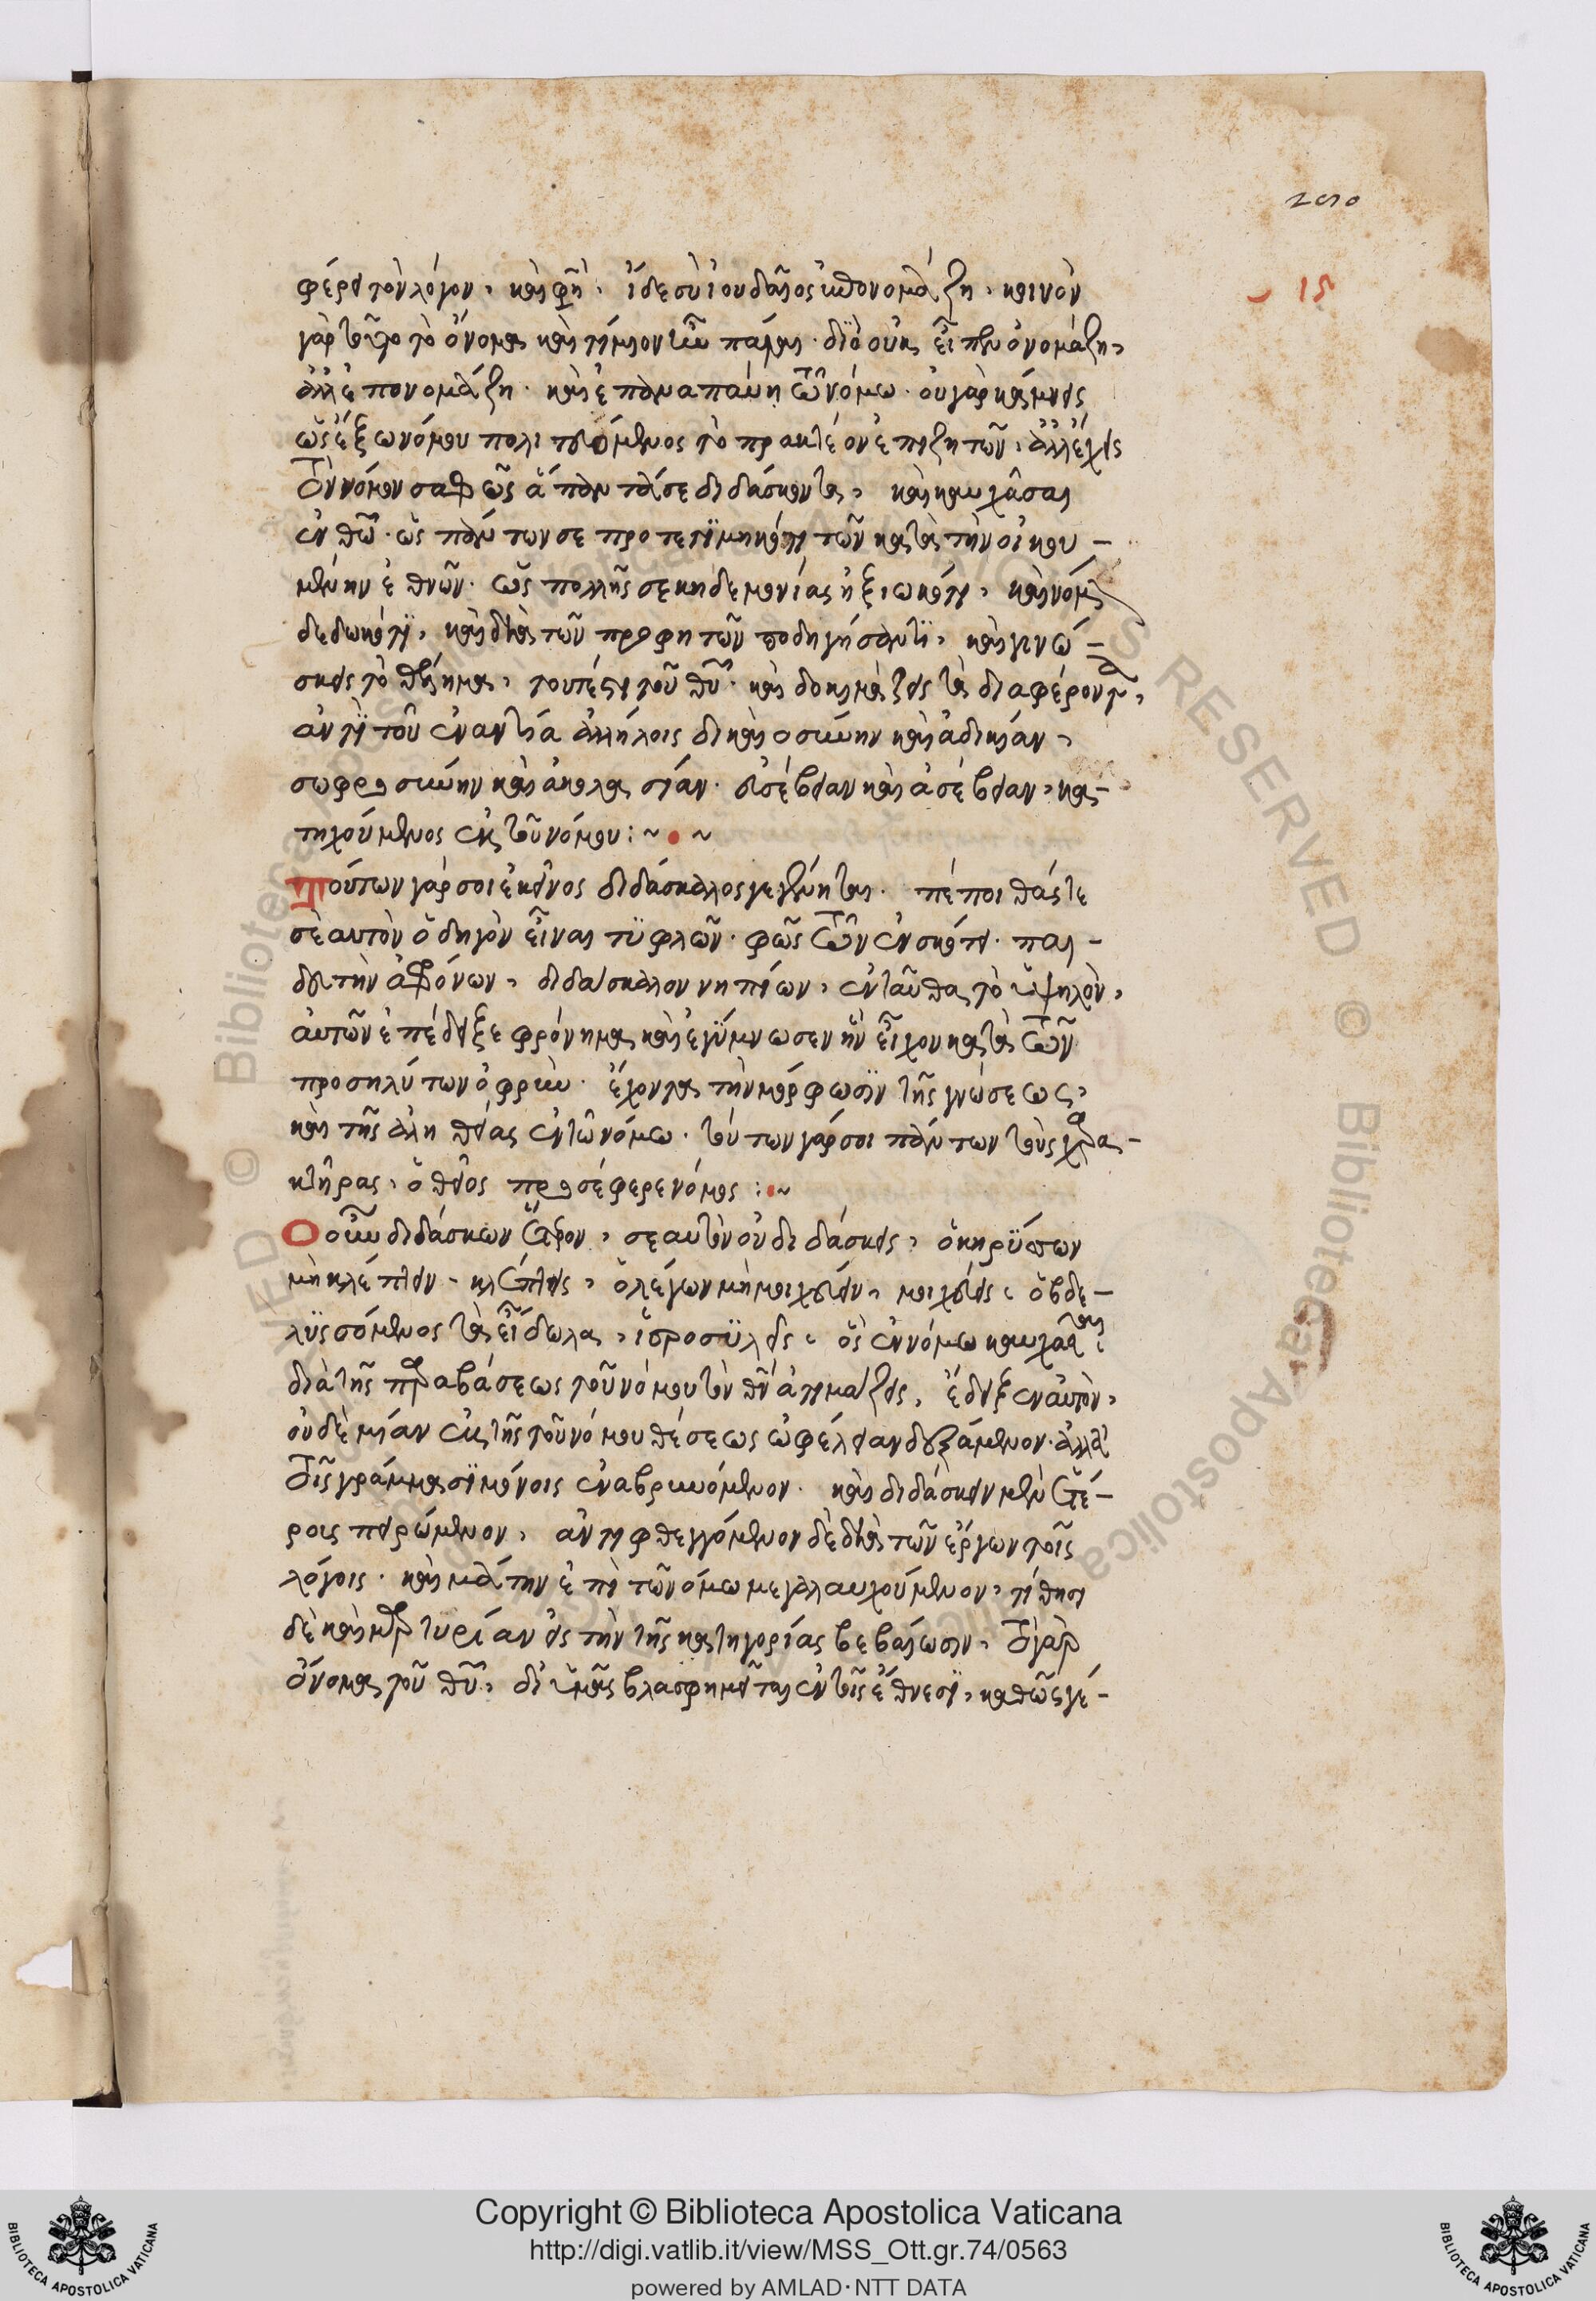 280
ιϛ
φέρει τὸν λόγον, καὶ φησὶ, ἴδε σὺ ἰουδαῖος ἐπονομάζῃ, κοινὸν
γὰρ τοῦτο τὸ ὄνομα καὶ τίμιον ἦν πάλαι. διὸ οὐκ εἶπεν ὀνομάζῃ,
ἀλλ' ἐπονομάζῃ. καὶ ἐπαναπαύῃ τῶ νόμω. οὐ γὰρ κάμνεις
ὡς ἔξω νόμου πολιτευόμενος τὸ πρακτέον ἐπιζητῶν, ἀλλ' ἔχεις
τὸν νόμον σαφῶς ἅπαντά σε διδάσκοντα, καὶ καυχᾶσαι
ἐν θῶ. ὡς πάντων σε προτετιμηκότι τῶν κατὰ τὴν οἰκου-
μένην ἐθνῶν. ὡς πολλῆς σε κηδεμονίας ἠξιωκότι, καὶ νόμον
δεδωκότι, καὶ διὰ τῶν προφητῶν ποδηγήσαντι, καὶ γινώ-
σκεις τὸ θέλημα, τουτέστι τοῦ θῦ. καὶ δοκιμάζεις τὰ διαφέροντα,
ἀντὶ τοῦ ἐναντία ἀλλήλοις δικαιοσύνην καὶ ἀδικίαν,
σωφροσύνην καὶ ἀκολασίαν. εὐσέβειαν καὶ ἀσέβειαν, κα-
τηχούμενος ἐκ τοῦ νόμου:~ • ~
Τούτων γάρ σοι ἐκεῖνος διδάσκαλος γεγένηται. πέποιθάς τε
σεαυτὸν ὁδηγὸν εἶναι τυφλῶν. φῶς τῶν ἐν σκότει. παι-
δευτὴν ἀφρόνων, διδάσκαλον νηπίων, ἐνταῦθα τὸ ὑψηλὸν,
αὐτῶν ἐπέδειξε φρόνημα καὶ ἐγύμνωσεν ἣν εἶχον κατὰ τῶν
προσηλύτων ὀφρὺν. ἔχοντας τὴν μόρφωσιν τῆς γνώσεως,
καὶ τῆς ἀληθείας ἐν τῶ νόμω. τούτων γάρ σοι πάντων τοὺς χαρα-
κτῆρας, ὁ θεῖος προσέφερε νόμος:•~
Ὁ οὖν διδάσκων ἕτερον, σεαυτὸν οὐ διδάσκεις, ὁ κηρύσσων
μὴ κλέπτειν - κλέπτεις, ὁ λέγων μὴ μοιχεύειν, μοιχεύεις, ὁ βδε-
λυσσόμενος τὰ εἴδωλα, ἱεροσυλεῖς, ὃς ἐν νόμω καυχᾶσαι,
διὰ τῆς παραβάσεως τοῦ νόμου τὸν θν ἀτιμάζεις, ἔδειξεν αὐτὸν,
οὐδὲ μίαν ἐκ τῆς τοῦ νόμου θέσεως ὠφέλειαν δεξάμενον. ἀλλὰ
τοῖς γράμμασι μόνοις ἐναβρυνόμενον. καὶ διδάσκειν μὲν ἑτέ-
ροις πειρώμενον, ἀντιφθεγγόμενον δὲ διὰ τῶν ἔργων τοῖς
λόγοις. καὶ μάτην ἐπὶ τῶ νόμω μεγαλαυχούμενον, τίθησι
δὲ καὶ μαρτυρίαν εἰς τὴν τῆς κατηγορίας βεβαίωσιν, τὸ γὰρ
ὄνομα τοῦ θῦ, δι' ὑμᾶς βλασφημεῖται ἐν τοῖς ἔθνεσι, καθὼς γέ-
Copyright © Biblioteca Apostolica Vaticana
http://digi.vatlib.it/view/MSS_Ott.gr.74/0563
powered by AMLAD·NTT DATA
BIBLIOTECA APOSTOLICA VATICANA
BIBLIOTECA APOSTOLICA VATICANA